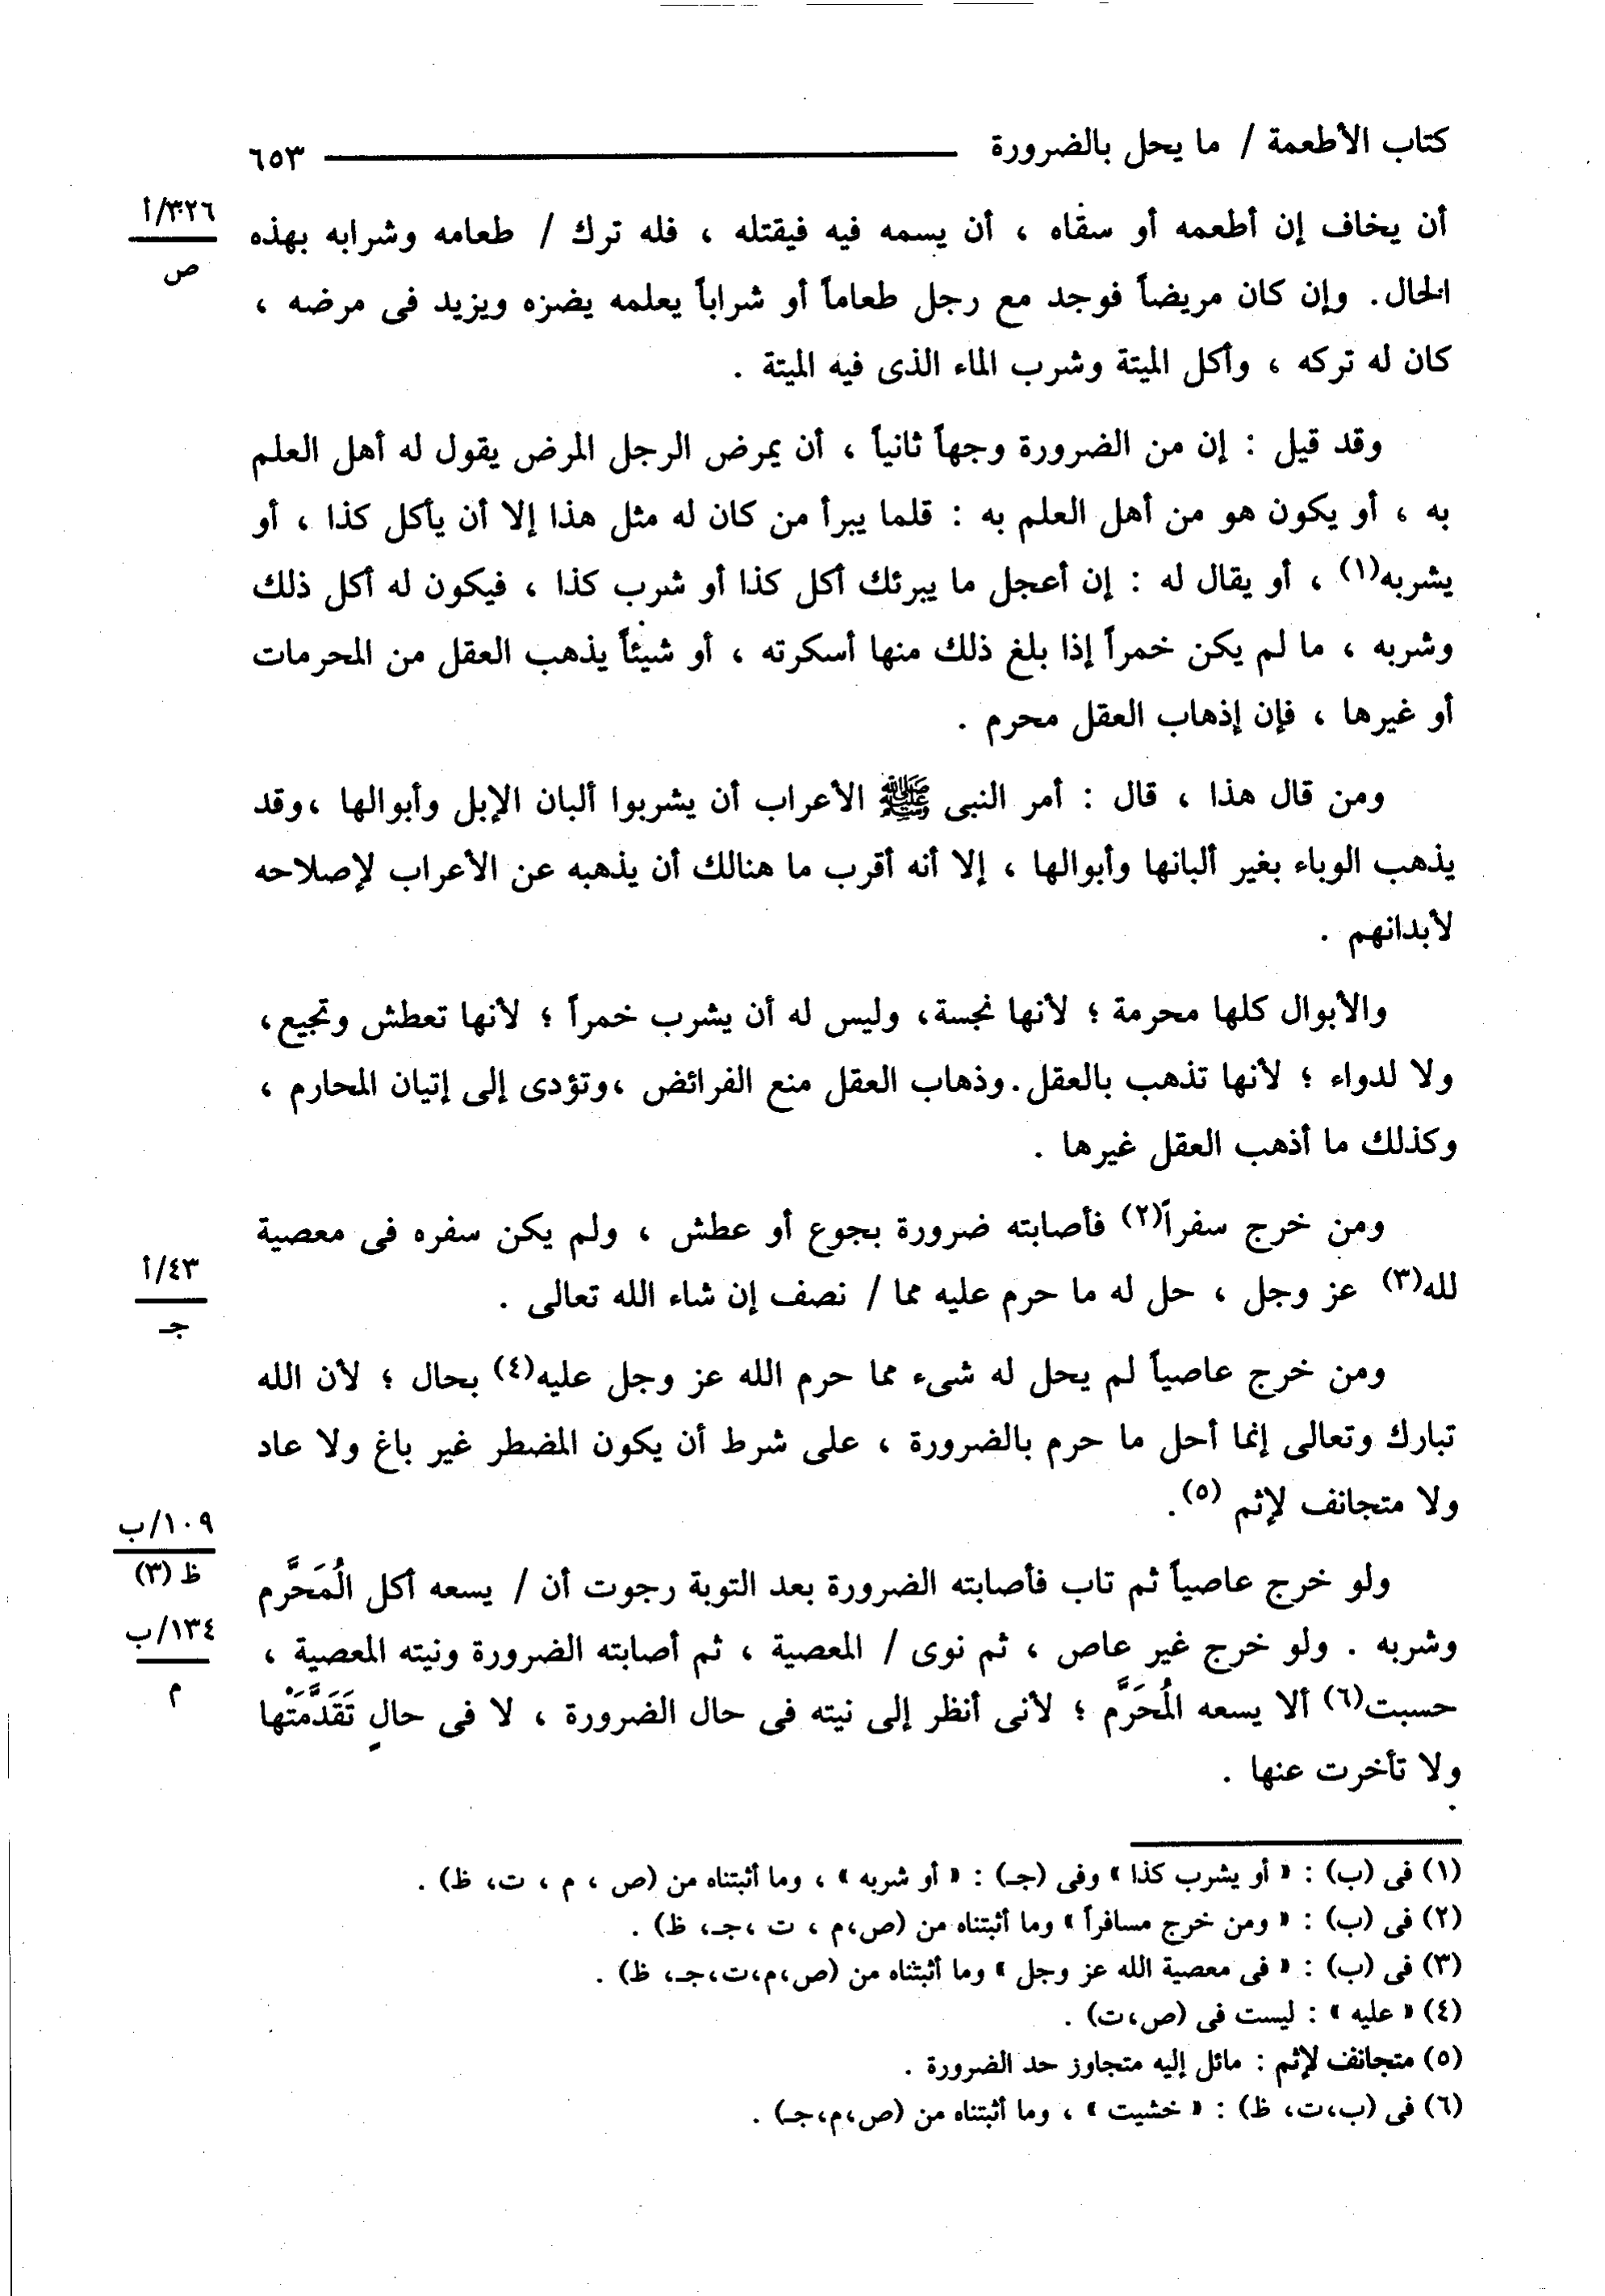 كتاب الأطعمة / ما يحل بالضرورة ٦٥٣
أن يخاف إن أطعمه أو سقاه ، أن يسمه فيه فيقتله ، فله ترك / طعامه وشرابه بهذه
٣٢٦/أ
ص
الحال. وإن كان مريضاً فوجد مع رجل طعاماً أو شراباً يعلمه يضره ويزيد فى مرضه ،
كان له تركه ، وأكل الميتة وشرب الماء الذى فيه الميتة .
وقد قيل : إن من الضرورة وجهاً ثانياً ، أن يمرض الرجل المرض يقول له أهل العلم
به ، أو يكون هو من أهل العلم به : قلما يبرأ من كان له مثل هذا إلا أن يأكل كذا ، أو
يشربه(١) ، أو يقال له : إن أعجل ما يبرئك أكل كذا أو شرب كذا ، فيكون له أكل ذلك
وشربه ، ما لم يكن خمراً إذا بلغ ذلك منها أسكرته ، أو شيئاً يذهب العقل من المحرمات
أو غيرها ، فإن إذهاب العقل محرم .
ومن قال هذا ، قال : أمر النبى ﷺ الأعراب أن يشربوا ألبان الإبل وأبوالها ،وقد
يذهب الوباء بغير ألبانها وأبوالها ، إلا أنه أقرب ما هنالك أن يذهبه عن الأعراب لإصلاحه
لأبدانهم .
والأبوال كلها محرمة ؛ لأنها نجسة، وليس له أن يشرب خمراً ؛ لأنها تعطش وتجيع،
ولا لدواء ؛ لأنها تذهب بالعقل. وذهاب العقل منع الفرائض ،وتؤدى إلى إتيان المحارم ،
وكذلك ما أذهب العقل غيرها .
ومن خرج سفراً(٢) فأصابته ضرورة بجوع أو عطش ، ولم يكن سفره فى معصية
لله(٣) عز وجل ، حل له ما حرم عليه مما / نصف إن شاء الله تعالى .
٤٣/أ
جـ
ومن خرج عاصياً لم يحل له شىء مما حرم الله عز وجل عليه(٤) بحال ؛ لأن الله
تبارك وتعالى إنما أحل ما حرم بالضرورة ، على شرط أن يكون المضطر غير باغ ولا عاد
ولا متجانف لإثم (٥).
ولو خرج عاصياً ثم تاب فأصابته الضرورة بعد التوبة رجوت أن / يسعه أكل الْمُحَرَّم
١٠٩/ب
ظ (٣)
وشربه . ولو خرج غير عاص ، ثم نوى / المعصية ، ثم أصابته الضرورة ونيته المعصية ،
١٣٤/ب
م
حسبت(٦) ألا يسعه الْمُحَرَّم ؛ لأنى أنظر إلى نيته فى حال الضرورة ، لا فى حالٍ تَقَدَّمَتْها
ولا تأخرت عنها .
(١) فى (ب) : « أو يشرب كذا » وفى (جـ) : « أو شربه » ، وما أثبتناه من (ص ، م ، ت، ظ) .
(٢) فى (ب) : « ومن خرج مسافراً » وما أثبتناه من (ص،م ، ت ،جـ، ظ) .
(٣) فى (ب) : « فى معصية الله عز وجل » وما أثبتناه من (ص،م،ت،جـ، ظ) .
(٤) « عليه » : ليست فى (ص،ت) .
(٥) متجانف لإثم : مائل إليه متجاوز حد الضرورة .
(٦) فى (ب،ت، ظ) : « خشيت » ، وما أثبتناه من (ص،م،جـ) .